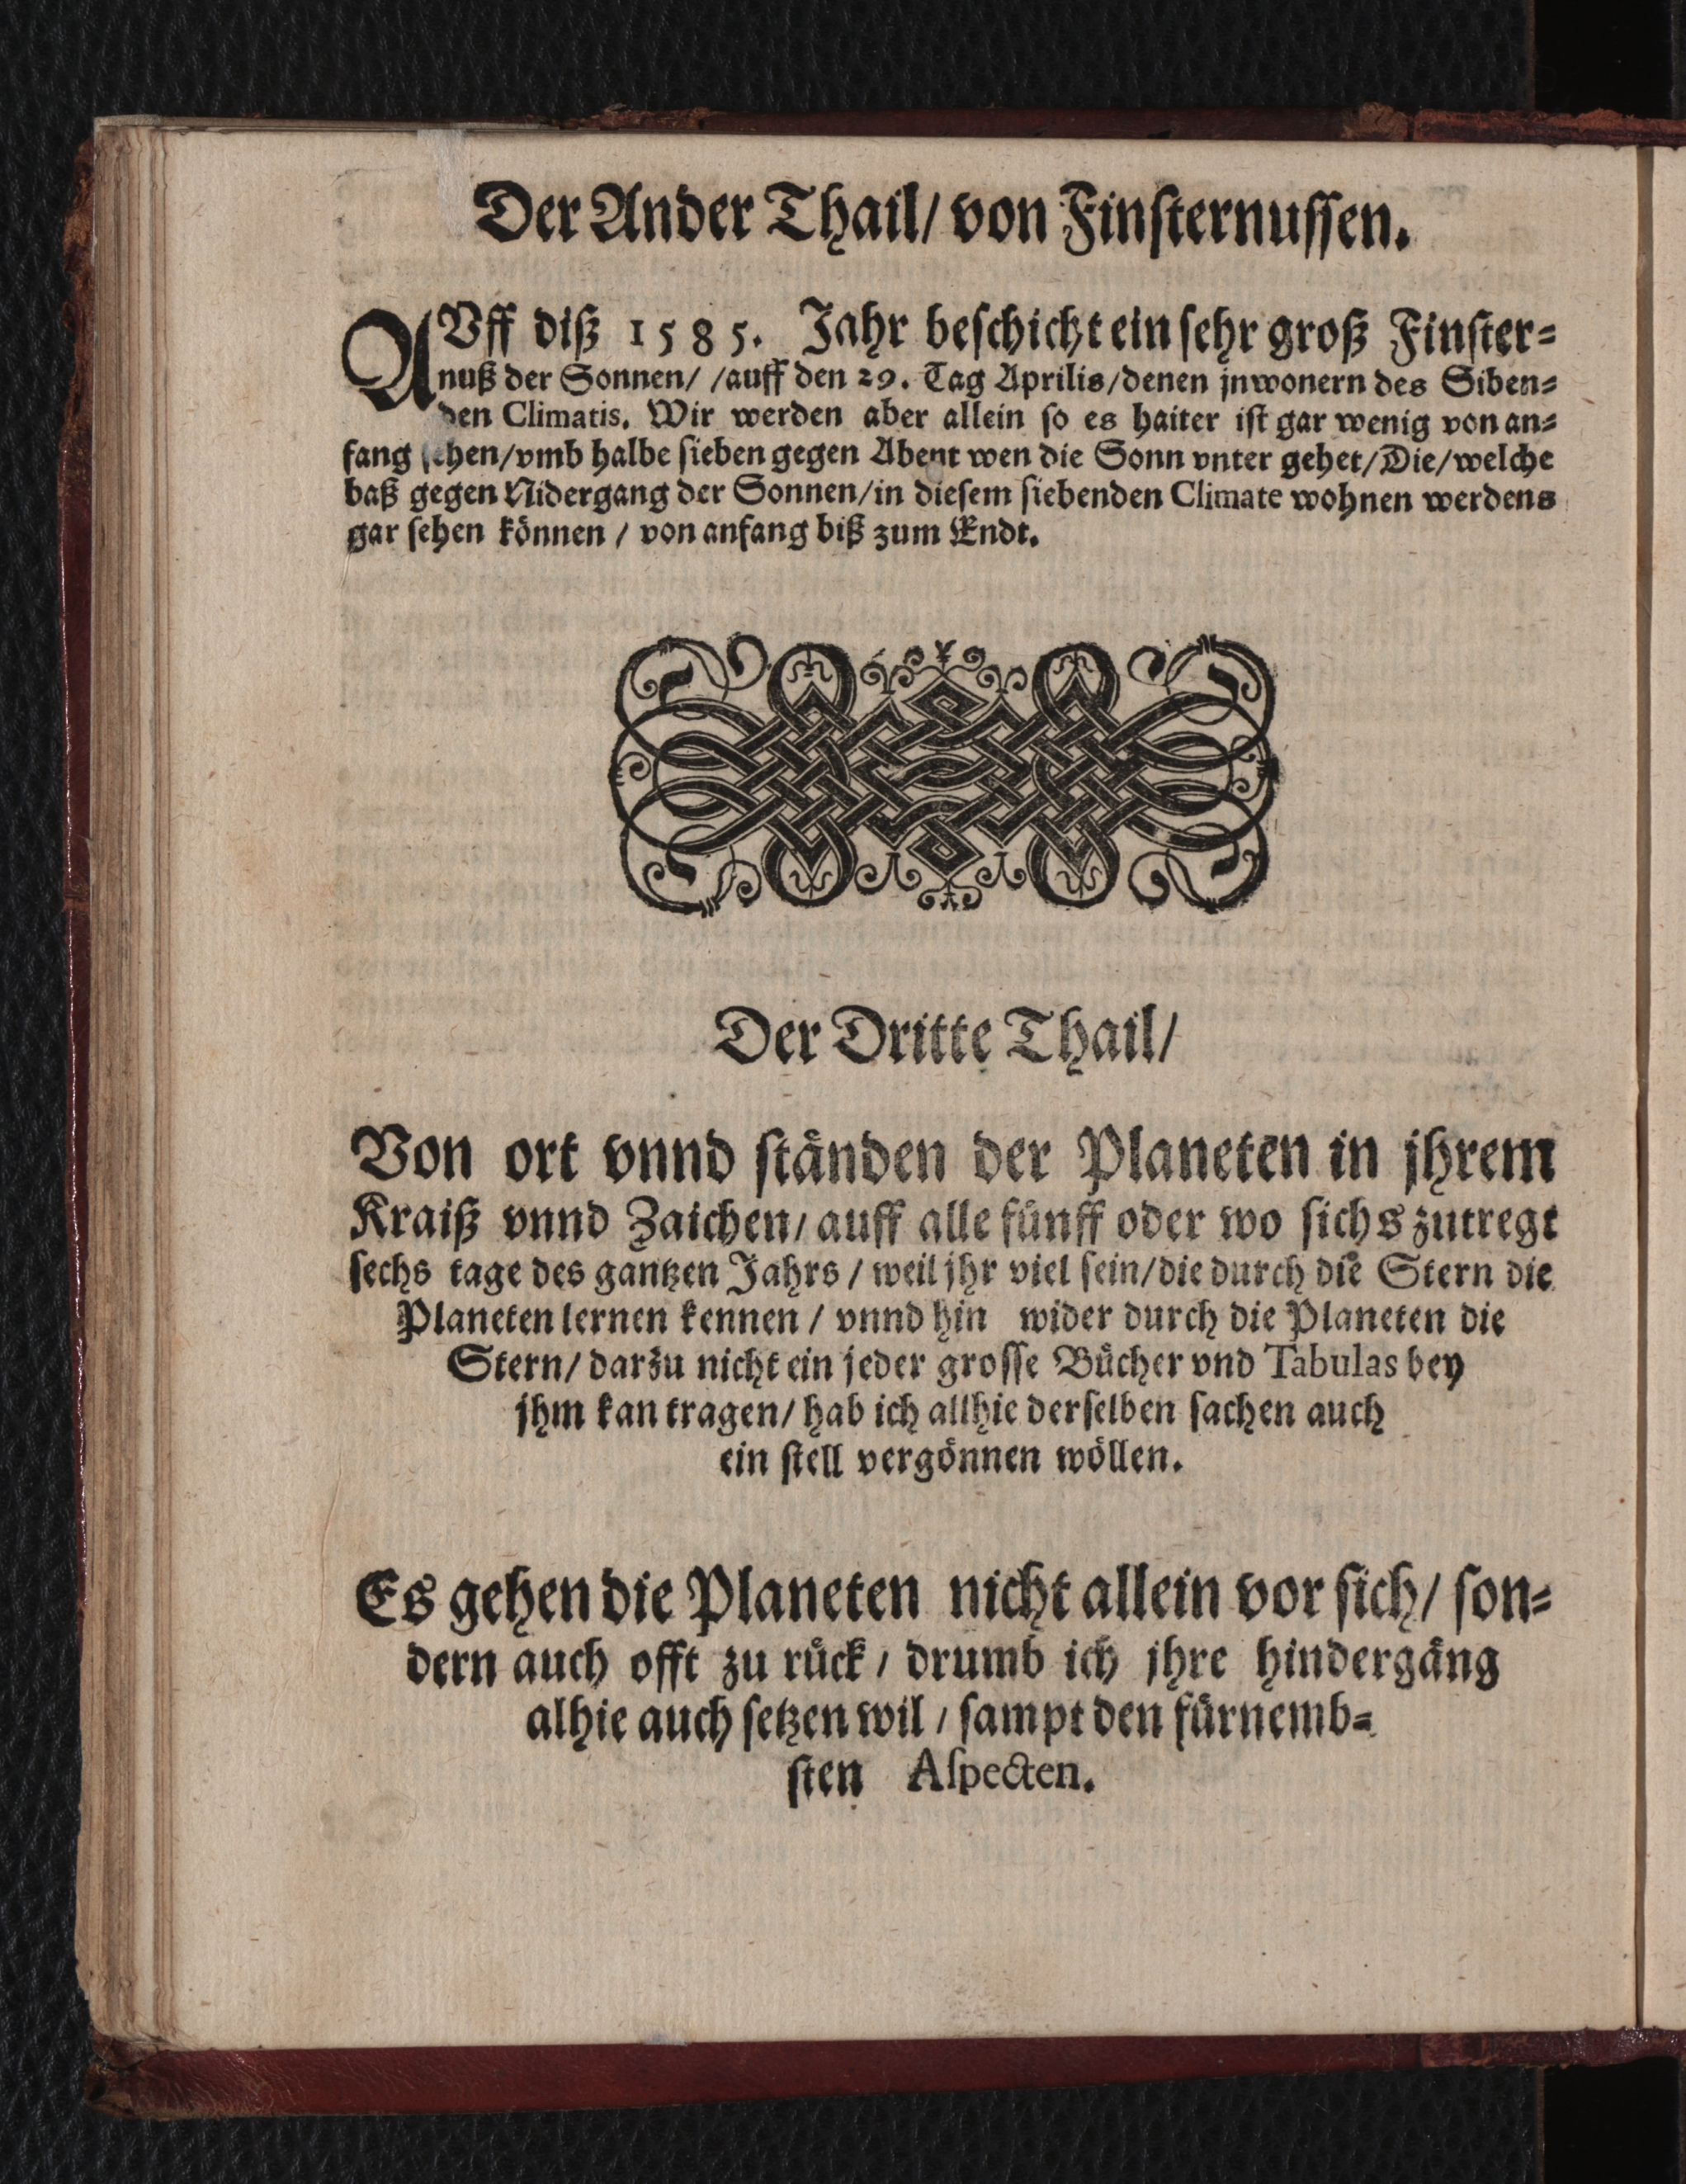 Der Ander Thail/ von Finſternuſſen.
AVff diß 1585. Jahr beſchicht ein ſehr groß Finſter⸗
nuß der Sonnen/ /auff den 29. Tag Aprilis/denen jnwonern des Siben⸗
den Climatis. Wir werden aber allein ſo es haiter iſt gar wenig von an⸗
fang ſehen/vmb halbe ſieben gegen Abent wen die Sonn vnter gehet/Die/welche
baß gegen Nidergang der Sonnen/in dieſem ſiebenden Climate wohnen werdens
gar ſehen können / von anfang biß zum Endt.
Der Dritte Thail/
Von ort vnnd ſtånden der Planeten in jhrem
Kraiß vnnd Zaichen/ auff alle fünff oder wo ſichs zutregt
ſechs tage des gantzen Jahrs / weil jhr viel ſein/die durch die Stern die
Planeten lernen kennen / vnnd hin wider durch die Planeten die
Stern/ darzu nicht ein jeder groſſe Bücher vnd Tabulas bey
jhm kan tragen/ hab ich allhie derſelben ſachen auch
ein ſtell vergönnen wöllen.
Es gehen die Planeten nicht allein vor ſich/ ſon⸗
dern auch offt zu rück / drumb ich jhre hindergång
alhie auch ſetzen wil / ſampt den fürnemb⸗
ſten Aſpecten.